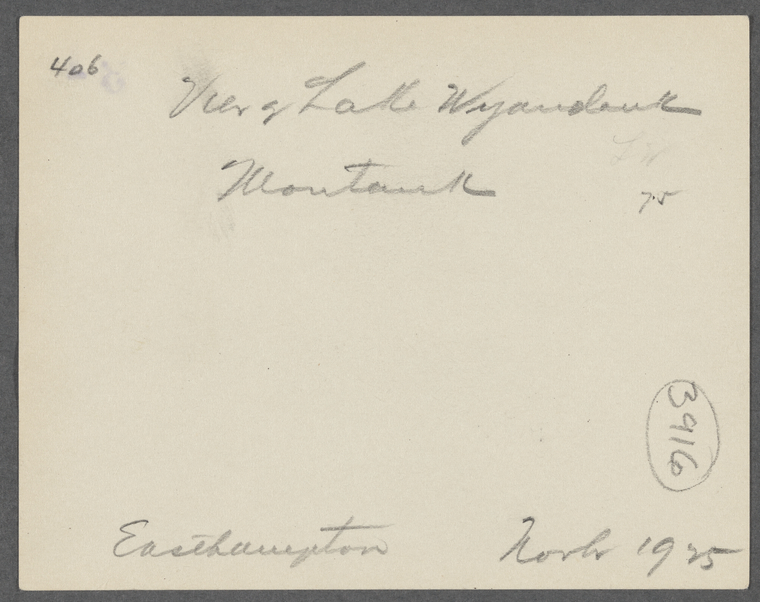 406
View of Lake Wyandank
Montauk
75
3916
Easthampton
Novbr 1925